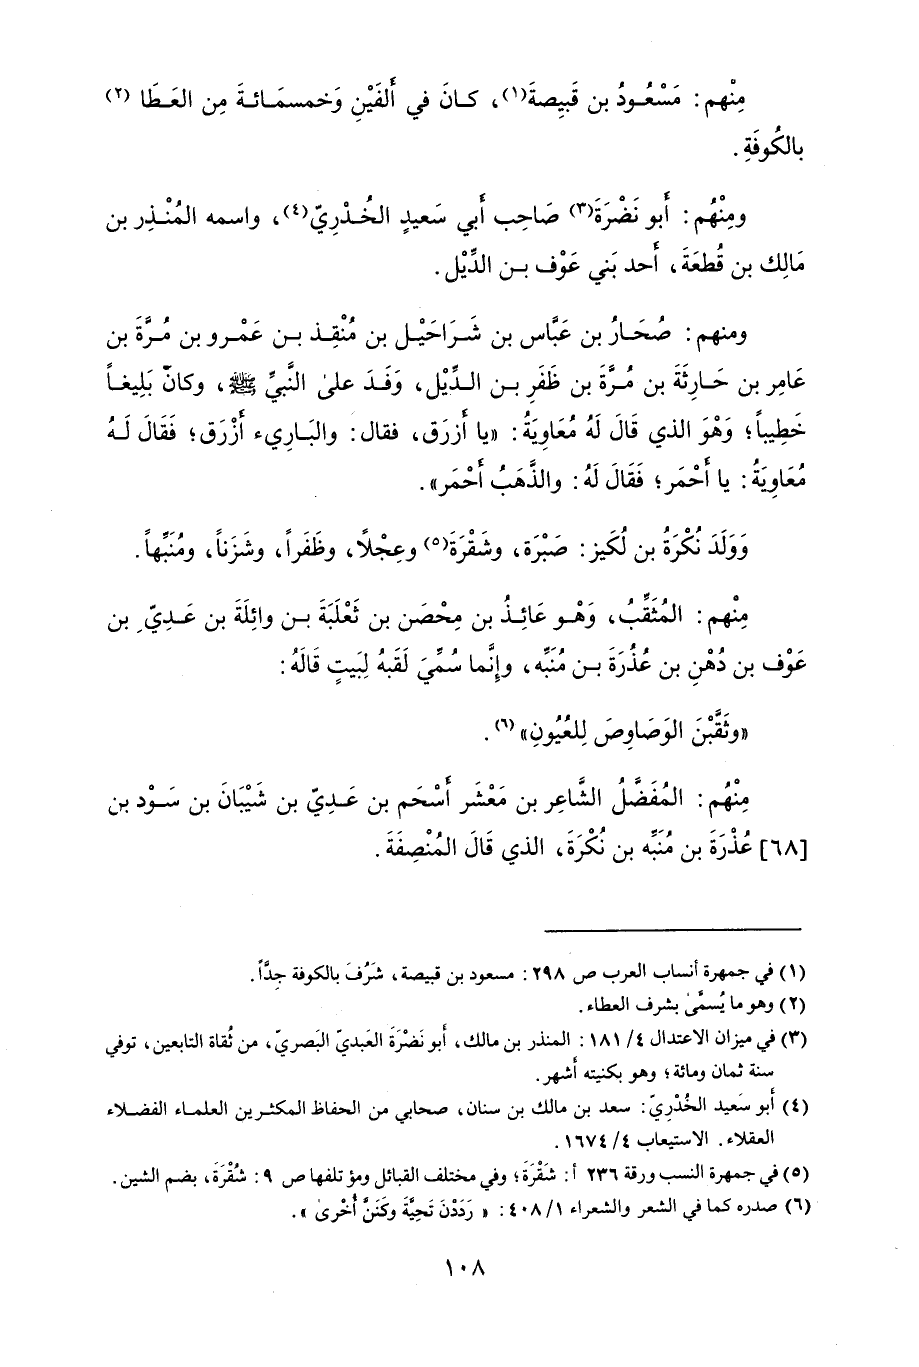 مِنْهم: مَسْعُودُ بن قَبِيصةَ(١)، كـانَ في أَلفَيْنِ وَخمسمَـائـةَ مِن العَـطَا (٢)
بالكُوفَةِ.
ومِنْهُم: أَبو نَضْرَةَ(٣) صَاحِب أَبي سَعيدٍ الخُـدْرِيّ(٤)، واسمه المُنْـذِر بن
مَالِك بن قُطعَةَ، أَحد بَني عَوْف بـن الدِّيْل.
ومنهم: صُحَـارُ بن عَبَّاس بن شَـرَاحَيْـل بن مُنْقِـذ بـن عَمْـرو بن مُـرَّةَ بن
عَامِر بن حَـارِثَةَ بن مُـرَّةَ بن ظَفَرِ بـن الـدِّيْل، وَفَـدَ علىٰ النَّبيِّ ﷺ، وكانَ بَلِيغـاً
خَطِيباً؛ وَهْوَ الذي قَالَ لَهُ مُعَاوِيَةُ: «يا أَزرَق، فقال: والبَـاريء أَزْرَق؛ فَقَالَ لَـهُ
مُعَاوِيَةُ: يا أَحْمَر؛ فقَالَ لَهُ: والذَّهَبُ أَحْمَر».
وَوَلَدَ نُكْرَةُ بن لُكَيز: صَبْرَة، وشَقْرَةَ(٥) وعِجْلًا، وظَفَراً، وشَزَناً، ومُنَبِّهاً.
مِنْهم: المُثَقِّبُ، وَهْـو عَائِـذُ بن مِحْصَن بن ثَعْلَبَةَ بـن وائِلَةَ بن عَـديّ بن
عَوْف بن دُهْنِ بن عُذُرَةَ بـن مُنَبِّه، وإِنَّما سُمِّيَ لَقَبهُ لِبَيتٍ قَالَهُ:
«وثَقَّبْنَ الوَصَاوِصَ لِلعُيُونِ»(٦).
مِنْهُم: المُفَضَّلُ الشَّاعِر بن مَعْشَر أَسْحَم بن عَـدِيّ بن شَيْبَانَ بن سَـوْد بن
[٦٨] عُذْرَةَ بن مُنَبِّه بن نُكْرَةَ، الذي قَالَ المُنْصِفَةَ.
(١) في جمهرة أنساب العرب ص ٢٩٨: مسعود بن قبيصة، شَرُفَ بالكوفة جِدَّاً.
(٢) وهو ما يُسمَّىٰ بشرف العطاء.
(٣) في ميزان الاعتدال ٤/ ١٨١: المنذر بن مالك، أبو نَضْرَةَ العَبديّ البَصريّ، من ثُقاة التابعين، توفي
سنة ثمان ومائة؛ وهو بكنيته أشهر.
(٤) أبو سَعيد الخُدْرِيّ: سعد بن مالك بن سنان، صحابي من الحفاظ المكثـرين العلمـاء الفضـلاء
العقلاء. الاستيعاب ٤/ ١٦٧٤.
(٥) في جمهرة النسب ورقة ٢٣٦ أ: شَقْرَة؛ وفي مختلف القبائل ومؤتلفها ص ٩: شُقْرَة، بضم الشين.
(٦) صدره كما في الشعر والشعراء ٤٠٨/١: « رَدَدْنَ تَحِيَّةً وكَنَنَّ أُخْرىٰ ».
١٠٨